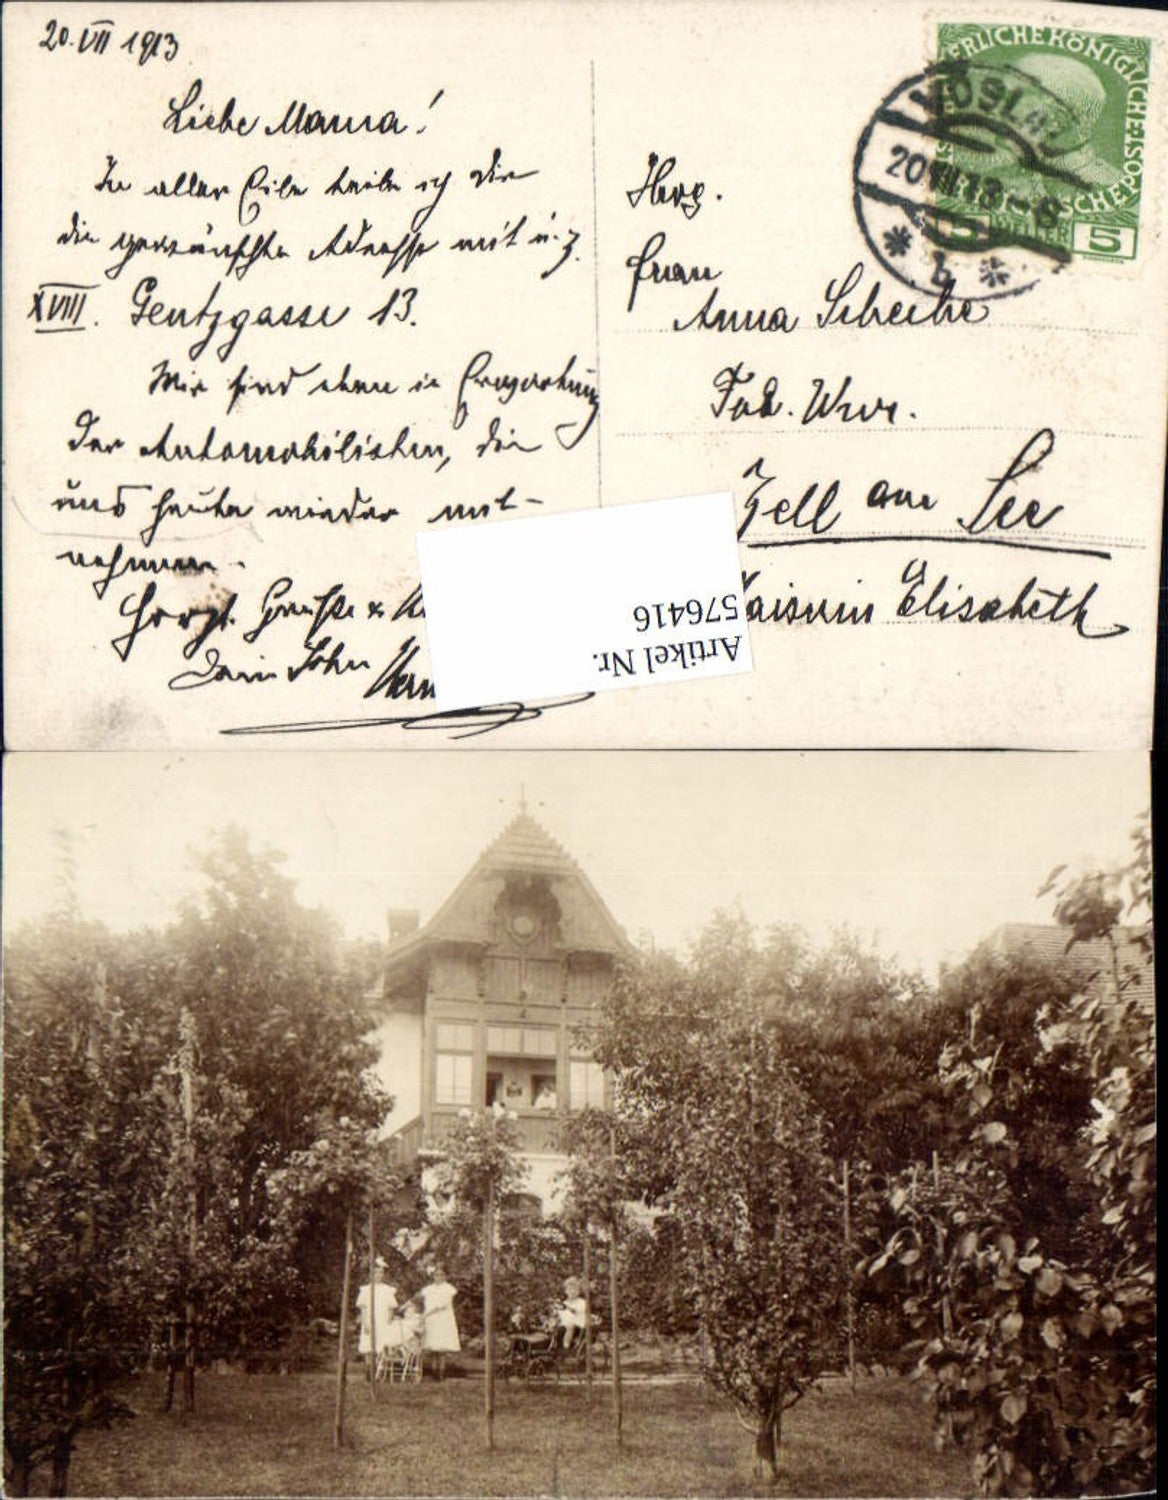 20. VII 1913
Liebe Mama!
In aller Eile teile ich Dir
die gewünschte Adresse mit u. z.
XVIII. Gentzgasse 13.
Wir sind eben in Erwartung
der Automobilisten, die
uns heute wieder mit-
nehmen.
Herzl. Grüße &
Dein Sohn
VÖSLAU
20.VII.13-8
b
KAISERLICHE KÖNIGLICHE ÖSTERREICHISCHE POST
5 HELLER 5
Frau
Anna Scheibe
Zell am See
Kaiserin Elisabeth
Artikel Nr.
576416